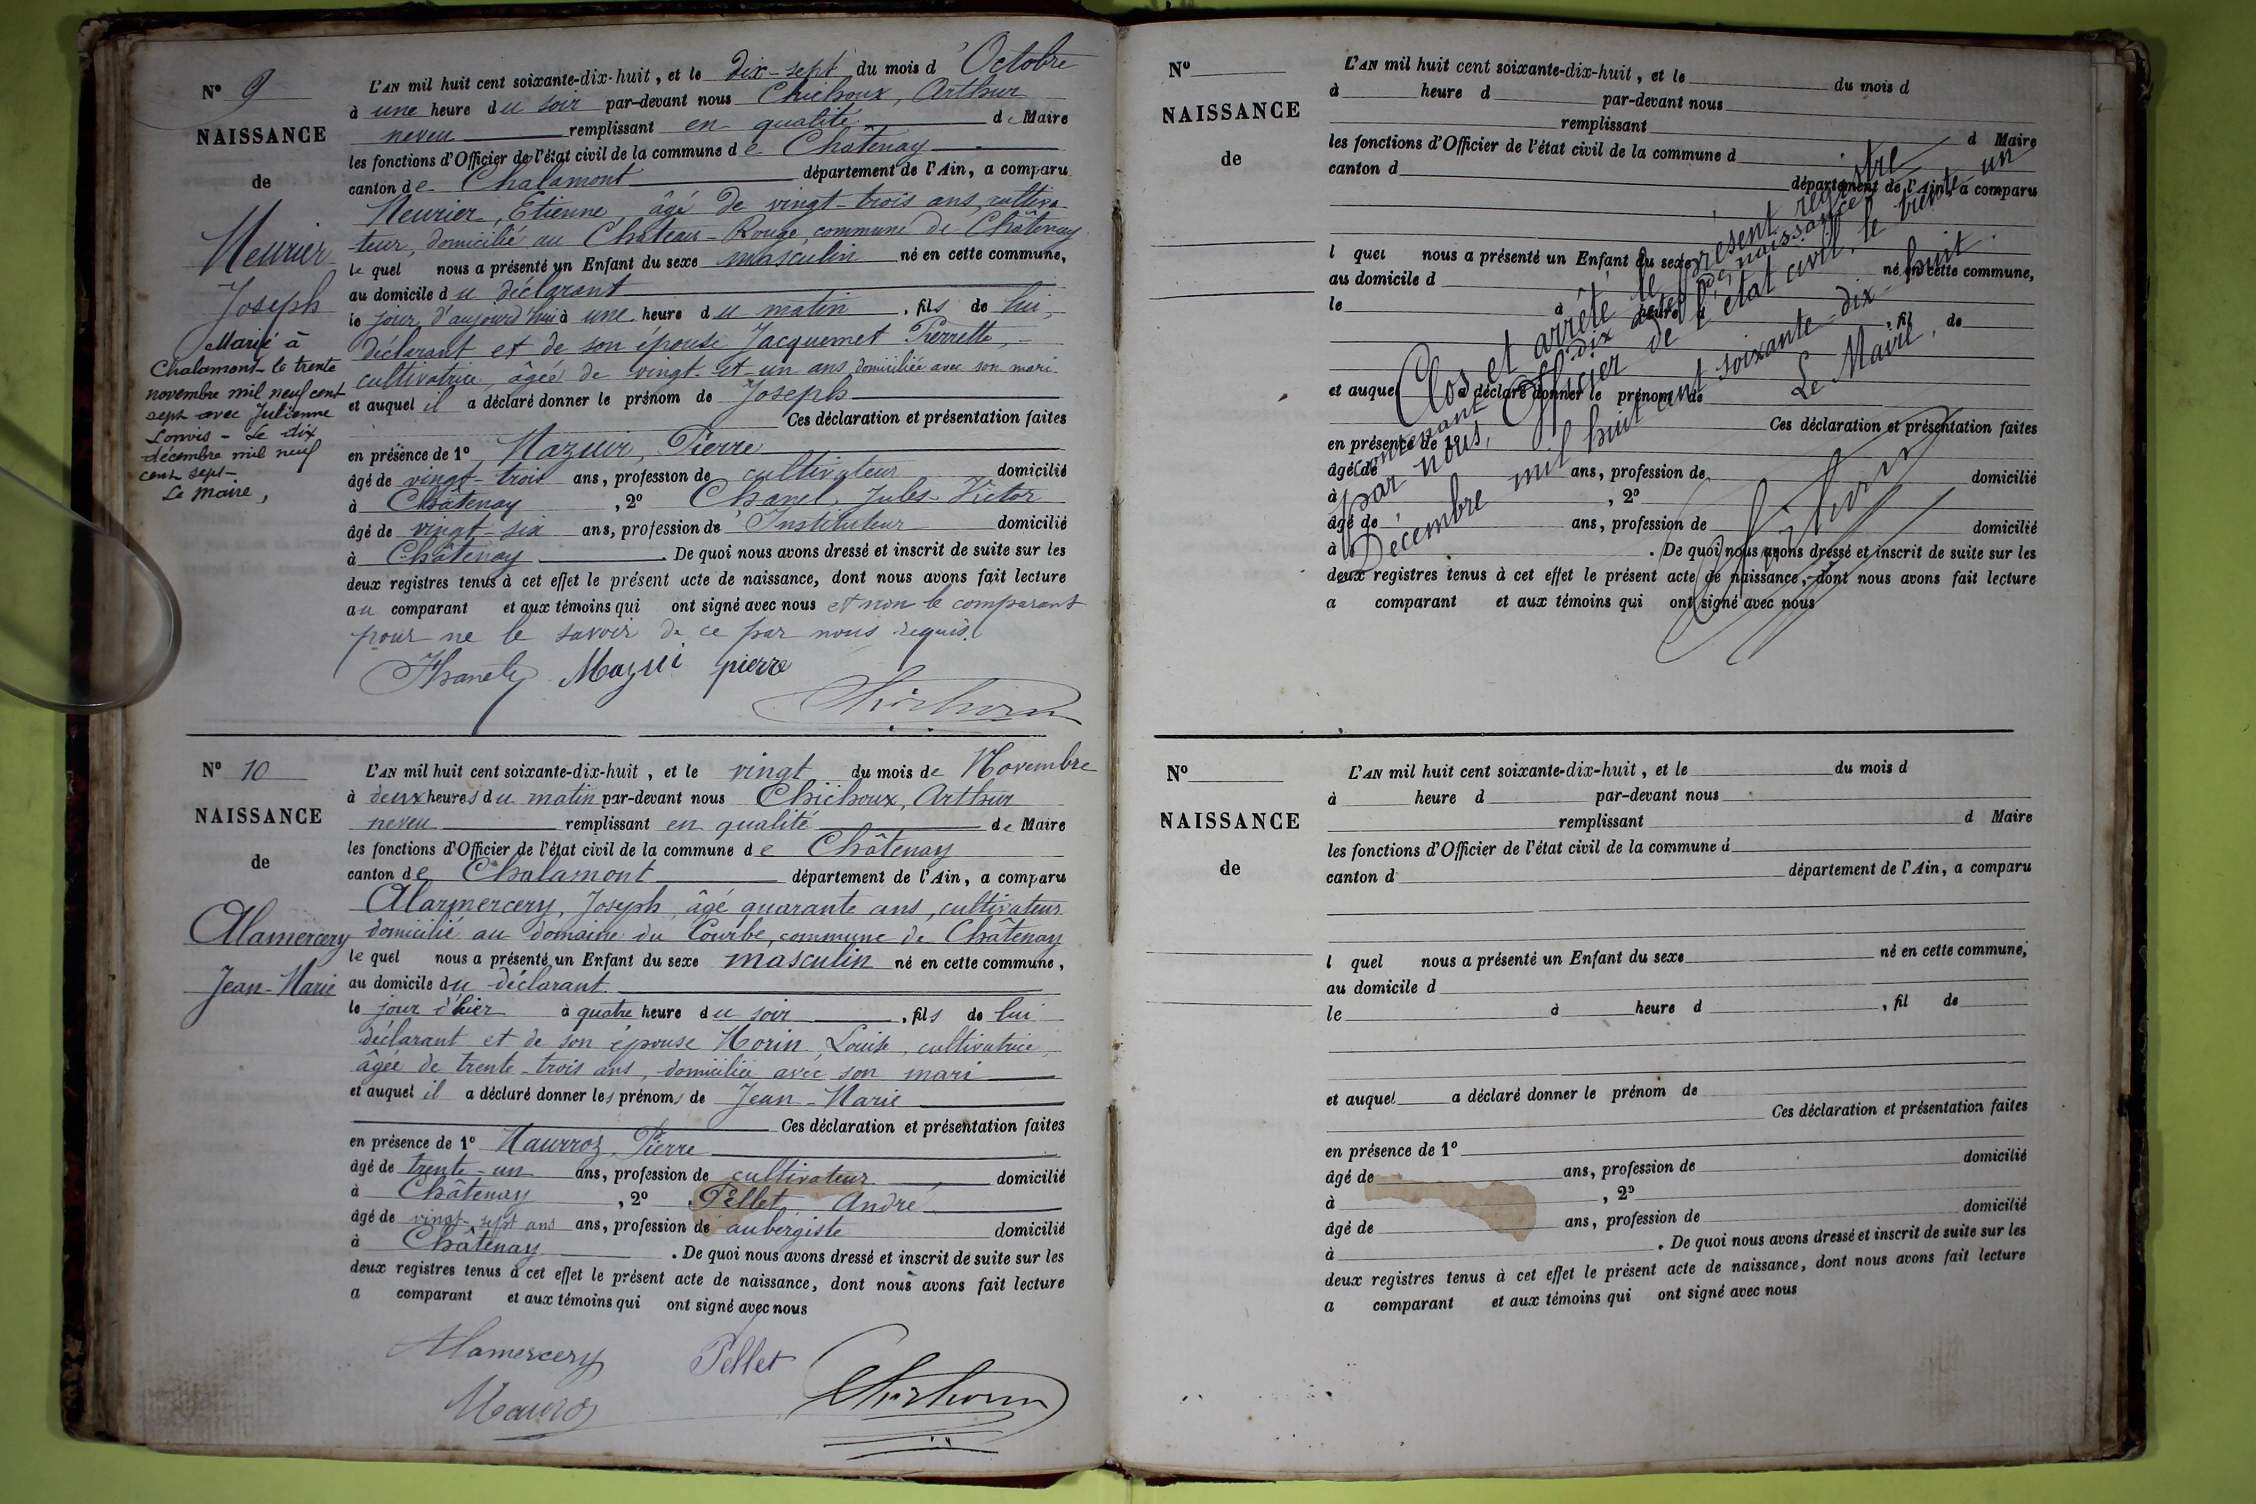 N° 9
NAISSANCE
de
Meurier
Joseph
Marié à
Chalamont le trente
novembre mil neuf cent
sept avec Julienne
Le dix
décembre mil neuf
cent sept
Le Maire,
L'AN mil huit cent soixante-dix-huit, et le dix-sept du mois d'Octobre
à une heure du soir par-devant nous Chichoux, Arthur
neveu remplissant en qualité de Maire
les fonctions d'Officier de l'état civil de la commune de Châtenay
canton de Chalamont département de l'Ain, a comparu
Meurier, Etienne, âgé de vingt-trois ans, cultiva-
teur, domicilié au Château-Rouge, commune de Châtenay
lequel nous a présenté un Enfant du sexe masculin né en cette commune,
au domicile du déclarant
le jour d'aujourd'hui à une heure du matin, fils de lui,
déclarant et de son épouse Jacquemet Pierrette,
cultivatrice, âgée de vingt-et-un ans, domiciliée avec son mari
et auquel il a déclaré donner le prénom de Joseph
Ces déclaration et présentation faites
en présence de 1° Mazuir, Pierre
âgé de vingt-trois ans, profession de cultivateur domicilié
à Châtenay, 2° Chanel, Jules-Victor
âgé de vingt-six ans, profession de Instituteur domicilié
à Châtenay. De quoi nous avons dressé et inscrit de suite sur les
deux registres tenus à cet effet le présent acte de naissance, dont nous avons fait lecture
au comparant et aux témoins qui ont signé avec nous et non le comparant
pour ne le savoir de ce par nous requis.
JChanel Mazui pierre
N° 10
NAISSANCE
de
Alamercery
Jean-Marie
L'AN mil huit cent soixante-dix-huit, et le vingt du mois de Novembre
à deux heures du matin par-devant nous Chichoux, Arthur
neveu remplissant en qualité de Maire
les fonctions d'Officier de l'état civil de la commune de Châtenay
canton de Chalamont département de l'Ain, a comparu
Alarmercery, Joseph, âgé quarante ans, cultivateur
domicilié au domaine du Courbe, commune de Châtenay
lequel nous a présenté un Enfant du sexe masculin né en cette commune,
au domicile du déclarant
le jour d'hier à quatre heure du soir, fils de lui
déclarant et de son épouse Morin, Louise, cultivatrice,
âgée de trente-trois ans, domiciliée avec son mari
et auquel il a déclaré donner les prénoms de Jean-Marie
Ces déclaration et présentation faites
en présence de 1° Maurroz, Pierre
âgé de trente-un ans, profession de cultivateur, domicilié
à Châtenay, 2° Pellet, André
âgé de vingt-sept ans ans, profession de aubergiste domicilié
à Châtenay. De quoi nous avons dressé et inscrit de suite sur les
deux registres tenus à cet effet le présent acte de naissance, dont nous avons fait lecture
a comparant et aux témoins qui ont signé avec nous
Alamercery Pellet
N°
NAISSANCE
de
L'AN mil huit cent soixante-dix-huit, et le du mois d
à heure d par-devant nous
remplissant d Maire
les fonctions d'Officier de l'état civil de la commune d
canton d département de l'Ain, a comparu
l quel nous a présenté un Enfant du sexe né en cette commune,
au domicile d
le à heure d, fil de
et auquel a déclaré donner le prénom de
Ces déclaration et présentation faites
en présence de 1°
âgé de ans, profession de domicilié
à, 2°
âgé de ans, profession de domicilié
à. De quoi nous avons dressé et inscrit de suite sur les
deux registres tenus à cet effet le présent acte de naissance, dont nous avons fait lecture
a comparant et aux témoins qui ont signé avec nous
Clos et arrêté le présent registre
contenant dix actes de naissances
par nous, Officier de l'état civil, le trente un
Décembre mil huit cent soixante-dix-huit.
Le Maire,
N°
NAISSANCE
de
L'AN mil huit cent soixante-dix-huit, et le du mois d
à heure d par-devant nous
remplissant d Maire
les fonctions d'Officier de l'état civil de la commune d
canton d département de l'Ain, a comparu
l quel nous a présenté un Enfant du sexe né en cette commune,
au domicile d
le à heure d, fil de
et auquel a déclaré donner le prénom de
Ces déclaration et présentation faites
en présence de 1°
âgé de ans, profession de domicilié
à, 2°
âgé de ans, profession de domicilié
à. De quoi nous avons dressé et inscrit de suite sur les
deux registres tenus à cet effet le présent acte de naissance, dont nous avons fait lecture
a comparant et aux témoins qui ont signé avec nous